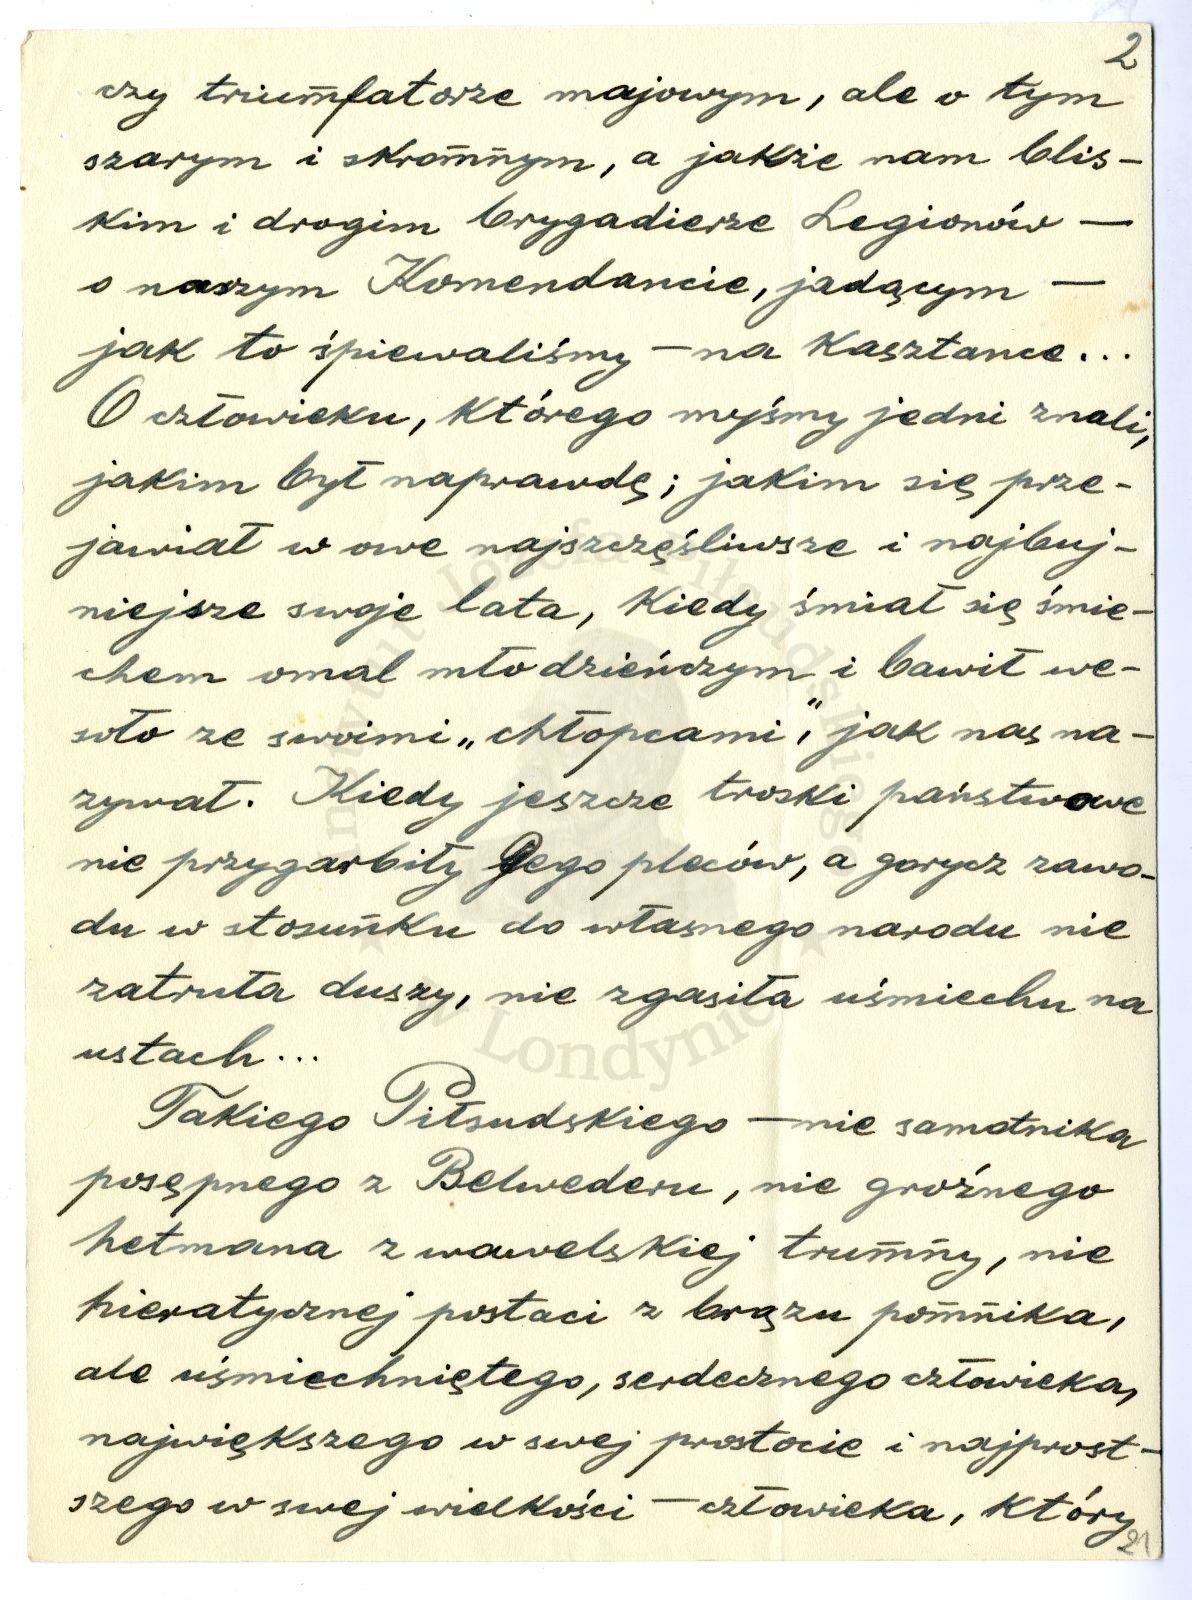 2
czy triumfatorze majowym, ale o tym
szarym i skromnym, a jakże nam blis-
kim i drogim brygadierze Legionów —
o naszym Komendancie, jadącym —
jak to śpiewaliśmy — na Kasztance...
O człowieku, którego myśmy jedni znali,
jakim był naprawdę; jakim się prze-
jawiał w owe najszczęśliwsze i najbuj-
niejsze swoje lata, kiedy śmiał się śmie-
chem omal młodzieńczym i bawił we-
soło ze swoimi „chłopcami”, jak nas na-
zywał. Kiedy jeszcze troski państwowe
nie przygarbiły Jego pleców, a gorycz zawo-
du w stosunku do własnego narodu nie
zatruła duszy, nie zgasiła uśmiechu na
ustach...
Takiego Piłsudskiego — nie samotnika
posępnego z Belwederu, nie groźnego
hetmana z wawelskiej trumny, nie
hieratycznej postaci z brązu pomnika,
ale uśmiechniętego, serdecznego człowieka,
największego w swej prostocie i najprost-
szego w swej wielkości — człowieka, który
21
Instytut Józefa Piłsudskiego
w Londynie